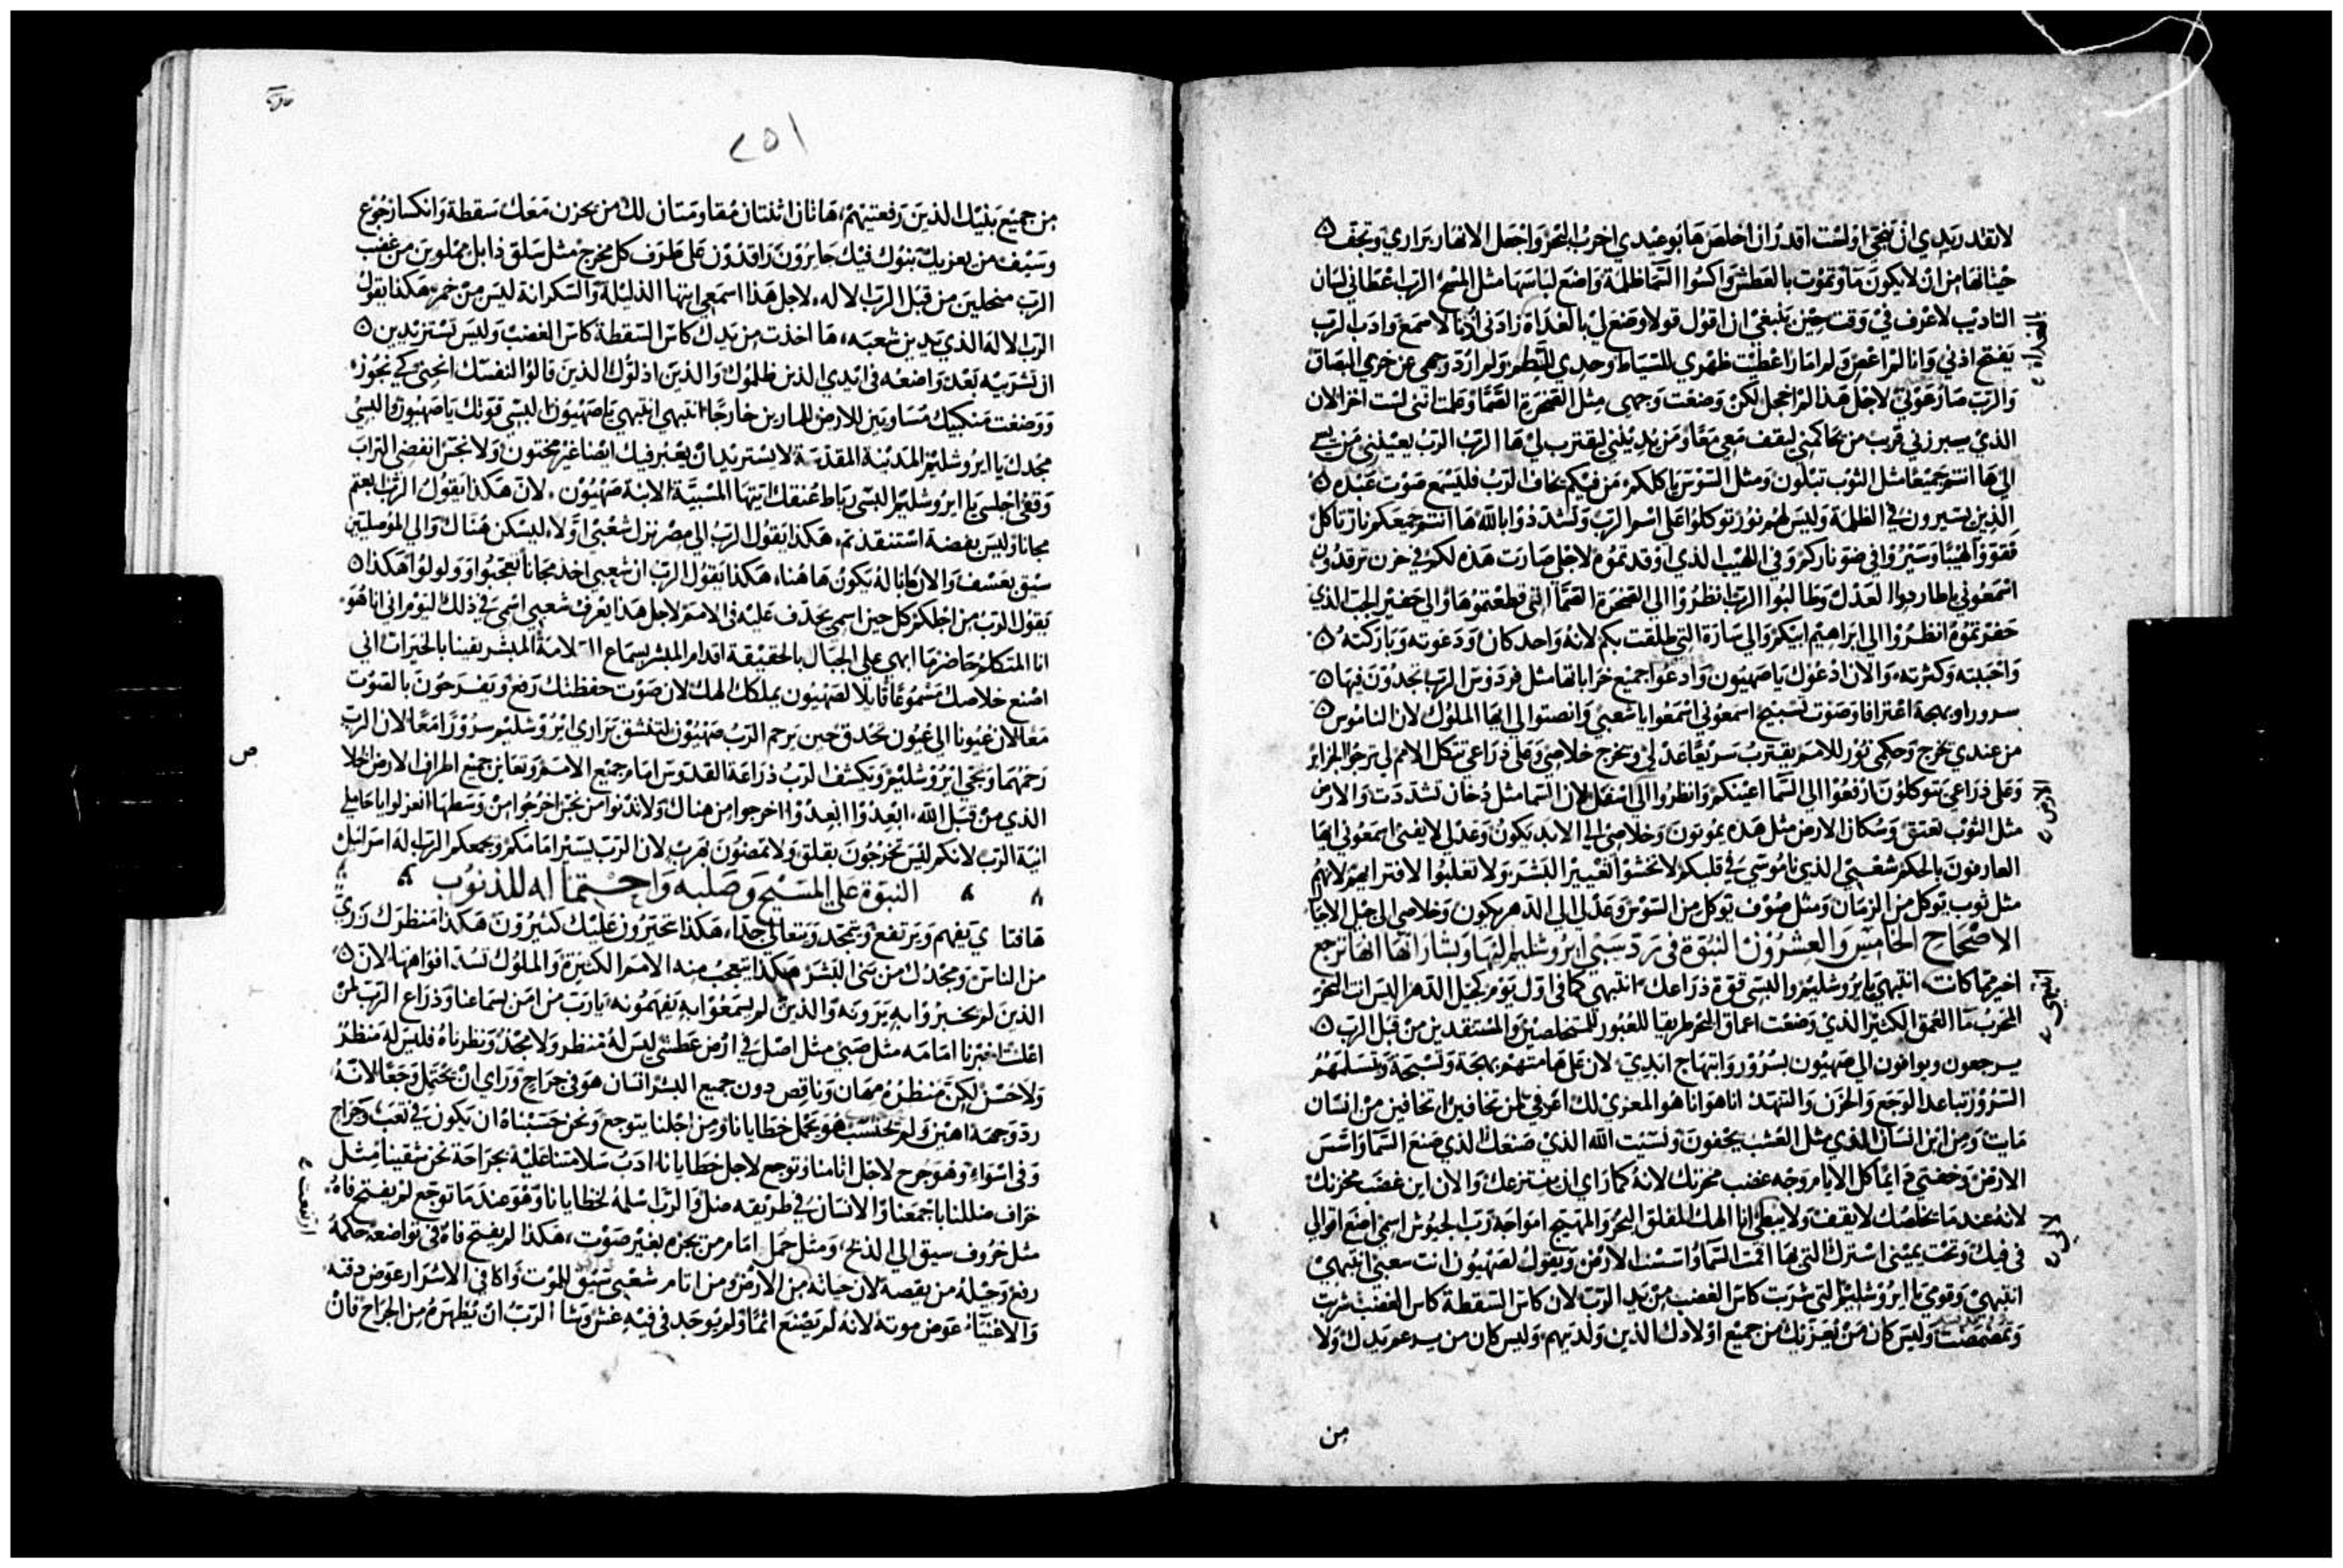 لا تقدر يدي ان تنجي او لست اقدر ان اخلص ها بوعيدي اخرب البحر واجعل الانهار براري وتجف
حيتانها من ان لا يكون ما وتموت بالعطش واكسوا السما ظلمة واضع لباسها مثل المسح الرب اعطاني لسان
التاديب لاعرف في وقت حين ينبغي ان اقول قولا وضع لي بالغداة زادني اذنا لاسمع وادب الرب
يفتح اذني وانا لم اعص ولم امار اعطيت ظهري للسياط وخدي للطم ولم ارد وجهي عن خزي البصاق
والرب صار عوني لاجل هذا لم اخجل لكن وضعت وجهي مثل الصخرة الصما وعلمت انني لست اخزا لان
الذي يبررني قريب من يحاكمني ليقف معي معا ومن يدينني ليقترب لي ها الرب الرب يعينني من يسي
الي ها انتم جميعا مثل الثوب تبلون ومثل السوس ياكلكم من فيكم يخاف الرب فليسمع صوت عبده
الذين يسيرون في الظلمة وليس لهم نور توكلوا على اسم الرب وتشددوا بالله ها انتم جميعكم نار تاكل
فقووا لهيبا وسيروا في ضو ناركم وفي اللهيب الذي اوقدتموه لاجلي صارت هذه لكم في حزن ترقدون
اسمعوني يا طاردوا العدل وطالبوا الرب انظروا الي الصخرة الصما التي قطعتموها والي حفير الجب الذي
حفرتموه انظروا الي ابراهيم ابيكم والي سارة التي طلقت بكم لانه واحد كان ودعوته وباركته
واحببته وكثرته والان ادعوك يا صهيون وادعوا جميع خراباتها مثل فردوس الرب تجدون فيها
سرورا وبهجة اعترافا وصوت تسبيح اسمعوني اسمعوا يا شعبي وانصتوا الي ايها الملوك لان الناموس
من عندي يخرج وحكمي نور للامم يقترب سريعا عدلي ويخرج خلاصي وعلى ذراعي تتكل الامم لي ترجوا الجزاير
وعلى ذراعي يتوكلون ارفعوا الي السما اعينكم وانظروا الي اسفل لان السما مثل دخان تشددت والارض
مثل الثوب تعتق وسكان الارض مثل هذه يموتون وخلاصي الي الابد يكون وعدلي لا يفنى اسمعوني ايها
العارفون بالحكم شعبي الذي ناموسي في قلبكم لا تخشوا تعيير البشر ولا تغلبوا لافترايهم لانهم
مثل ثوب يوكل من الزمان ومثل صوف يوكل من السوس وعدلي الي الدهر يكون وخلاصي الي جيل الاجيال
الاصحاح الخامس والعشرون النبوة في رد سبي ايروشليم اليها وبشاراتها انها ترجع
اخير مما كانت انتبهي يا ايروشليم والبسي قوة ذراعك انتبهي كما في اول يوم كجيل الدهر اليس انت البحر
المخرب ما العمق الكثير الذي وضعت اعماق البحر طريقا للعبور للمتخلصين والمستنقذين من قبل الرب
يرجعون ويوافون الي صهيون بسرور وابتهاج ابدي لان على هامتهم بهجة وتسبحة وتتسلمهم
السرور تباعد الوجع والحزن والتنهد انا هو انا هو المعزي لك اعرفي ممن تخافين اتخافين من انسان
مايت ومن ابن انسان الذي مثل العشب يجفون ونسيت الله الذي صنعك الذي صنع السما واسس
الارض وخفتي دايما كل الايام وجه غضب محزنك لانه كما راى ان ينتزعك والان اين غضب محزنك
لانه عند ما يخلصك لا يقف ولا يبطي انا الهك المقلق البحر والمهيج امواجه رب الجيوش اسمي اضع اقوالي
في فيك وتحت يميني استرك التي بها اقمت السما واسست الارض ويقول لصهيون انت شعبي انتبهي
انتبهي وقومي يا ايروشليم التي شربت كاس الغضب من يد الرب لان كاس السقطة كاس الغضب شربت
وتمصمصت وليس كان من يعزيك من جميع اولادك الذين ولدتيهم وليس كان من يدعم يدك ولا
من
٢٥١
من جميع بنيك الذين رفعتيهم هاتان اثنتان مقاومتان لك من يحزن معك سقطة وانكسار جوع
وسيف من يعزيك بنوك فيك حايرون راقدون على طرف كل مخرج مثل سلق ذابل مملوين من غضب
الرب منحلين من قبل الرب الاله لاجل هذا اسمعي ايتها الذليلة والسكرانة ليس من خمر هكذا يقول
الرب الاله الذي يدين شعبه ها اخذت من يدك كاس السقطة كاس الغضب وليس تستزيدين
ان تشربيه بعد واضعه في ايدي الذين ظلموك والذين اذلوك الذين قالوا لنفسك انحني كي نجوز
ووضعت منكبيك مساويتين للارض للمارين خارجا انتبهي انتبهي يا صهيون البسي قوتك يا صهيون والبسي
مجدك يا ايروشليم المدينة المقدسة لا يستزيد ان يعبر فيك ايضا غير مختون ولا نجس انفضي التراب
وقفي اجلسي يا ايروشليم البسي رباط عنقك ايتها المسبية الابنة صهيون لان هكذا يقول الرب ابعتم
مجانا وليس بفضة استنقذتم هكذا يقول الرب الي مصر نزل شعبي اولا ليسكن هناك والي الموصليين
سبق بعسف والان ما لي يكون هاهنا هكذا يقول الرب ان شعبي اخذ مجانا تعجبوا وولولوا هكذا
يقول الرب من اجلكم كل حين اسمي يجدف عليه في الامم لاجل هذا يعرف شعبي اسمي في ذلك اليوم اني انا هو
انا المتكلم حاضر ما ابهى على الجبال بالحقيقة اقدام المبشر بسماع السلامة المبشر يقينا بالخيرات اني
اصنع خلاصك مسموعا قايلا لصهيون يملك الهك لان صوت حفظتك رفع ويفرحون بالصوت
معا لان عيونا الي عيون تحدق حين يرحم الرب صهيون لتنشق براري ايروشليم سرورا معا لان الرب
رحمهما ونجى ايروشليم ويكشف الرب ذراعه القدوس امام جميع الامم وتعاين جميع اطراف الارض الخلا
الذي من قبل الله ابعدوا ابعدوا اخرجوا من هناك ولا تدنوا من نجس اخرجوا من وسطها انعزلوا يا حاملي
انية الرب لانكم ليس تخرجون بقلق ولا تمضون بهرب لان الرب يسير امامكم ويجمعكم الرب اله اسرائيل
النبوة على المسيح وصلبه واحتماله للذنوب
ها فتاي يفهم ويرتفع ويتمجد ويتعالى جدا هكذا يتحيرون عليك كثيرون هكذا منظرك زري
من الناس ومجدك من بني البشر هكذا يتعجب منه الامم الكثيرة والملوك تسد افواهها لان
الذين لم يخبروا به يرونه والذين لم يسمعوا به يفهمونه يا رب من امن بسماعنا وذراع الرب لمن
اعلنت اخبرنا امامه مثل صبي مثل اصل في ارض عطشى ليس له منظر ولا مجد ونظرناه فليس له منظر
ولا حسن لكن منظره مهان وناقص دون جميع البشر انسان هو في جراح وراى ان يحتمل وجعا لانه
رد وجهه اهين ولم يحتسب هو يحمل خطايانا ومن اجلنا يتوجع ونحن حسبناه ان يكون في تعب وجراح
وفي اسواء وهو جرح لاجل اثامنا وتوجع لاجل خطايانا ادب سلامتنا عليه بجراحة نحن شفينا مثل
خراف ضللنا باجمعنا والانسان في طريقه ضل والرب اسلمه لخطايانا وهو عند ما توجع لم يفتح فاه
مثل خروف سيق الي الذبح ومثل حمل امام من يجزه بغير صوت هكذا لم يفتح فاه في تواضعه حكمه
رفع وجيله من يقصه لان حياته من الارض ومن اثام شعبي سيق للموت واكافي الاشرار عوض دفنه
والاغنياء عوض موته لانه لم يصنع اثما ولم يوجد في فيه غش وشا الرب ان يطهره من الجراح فان